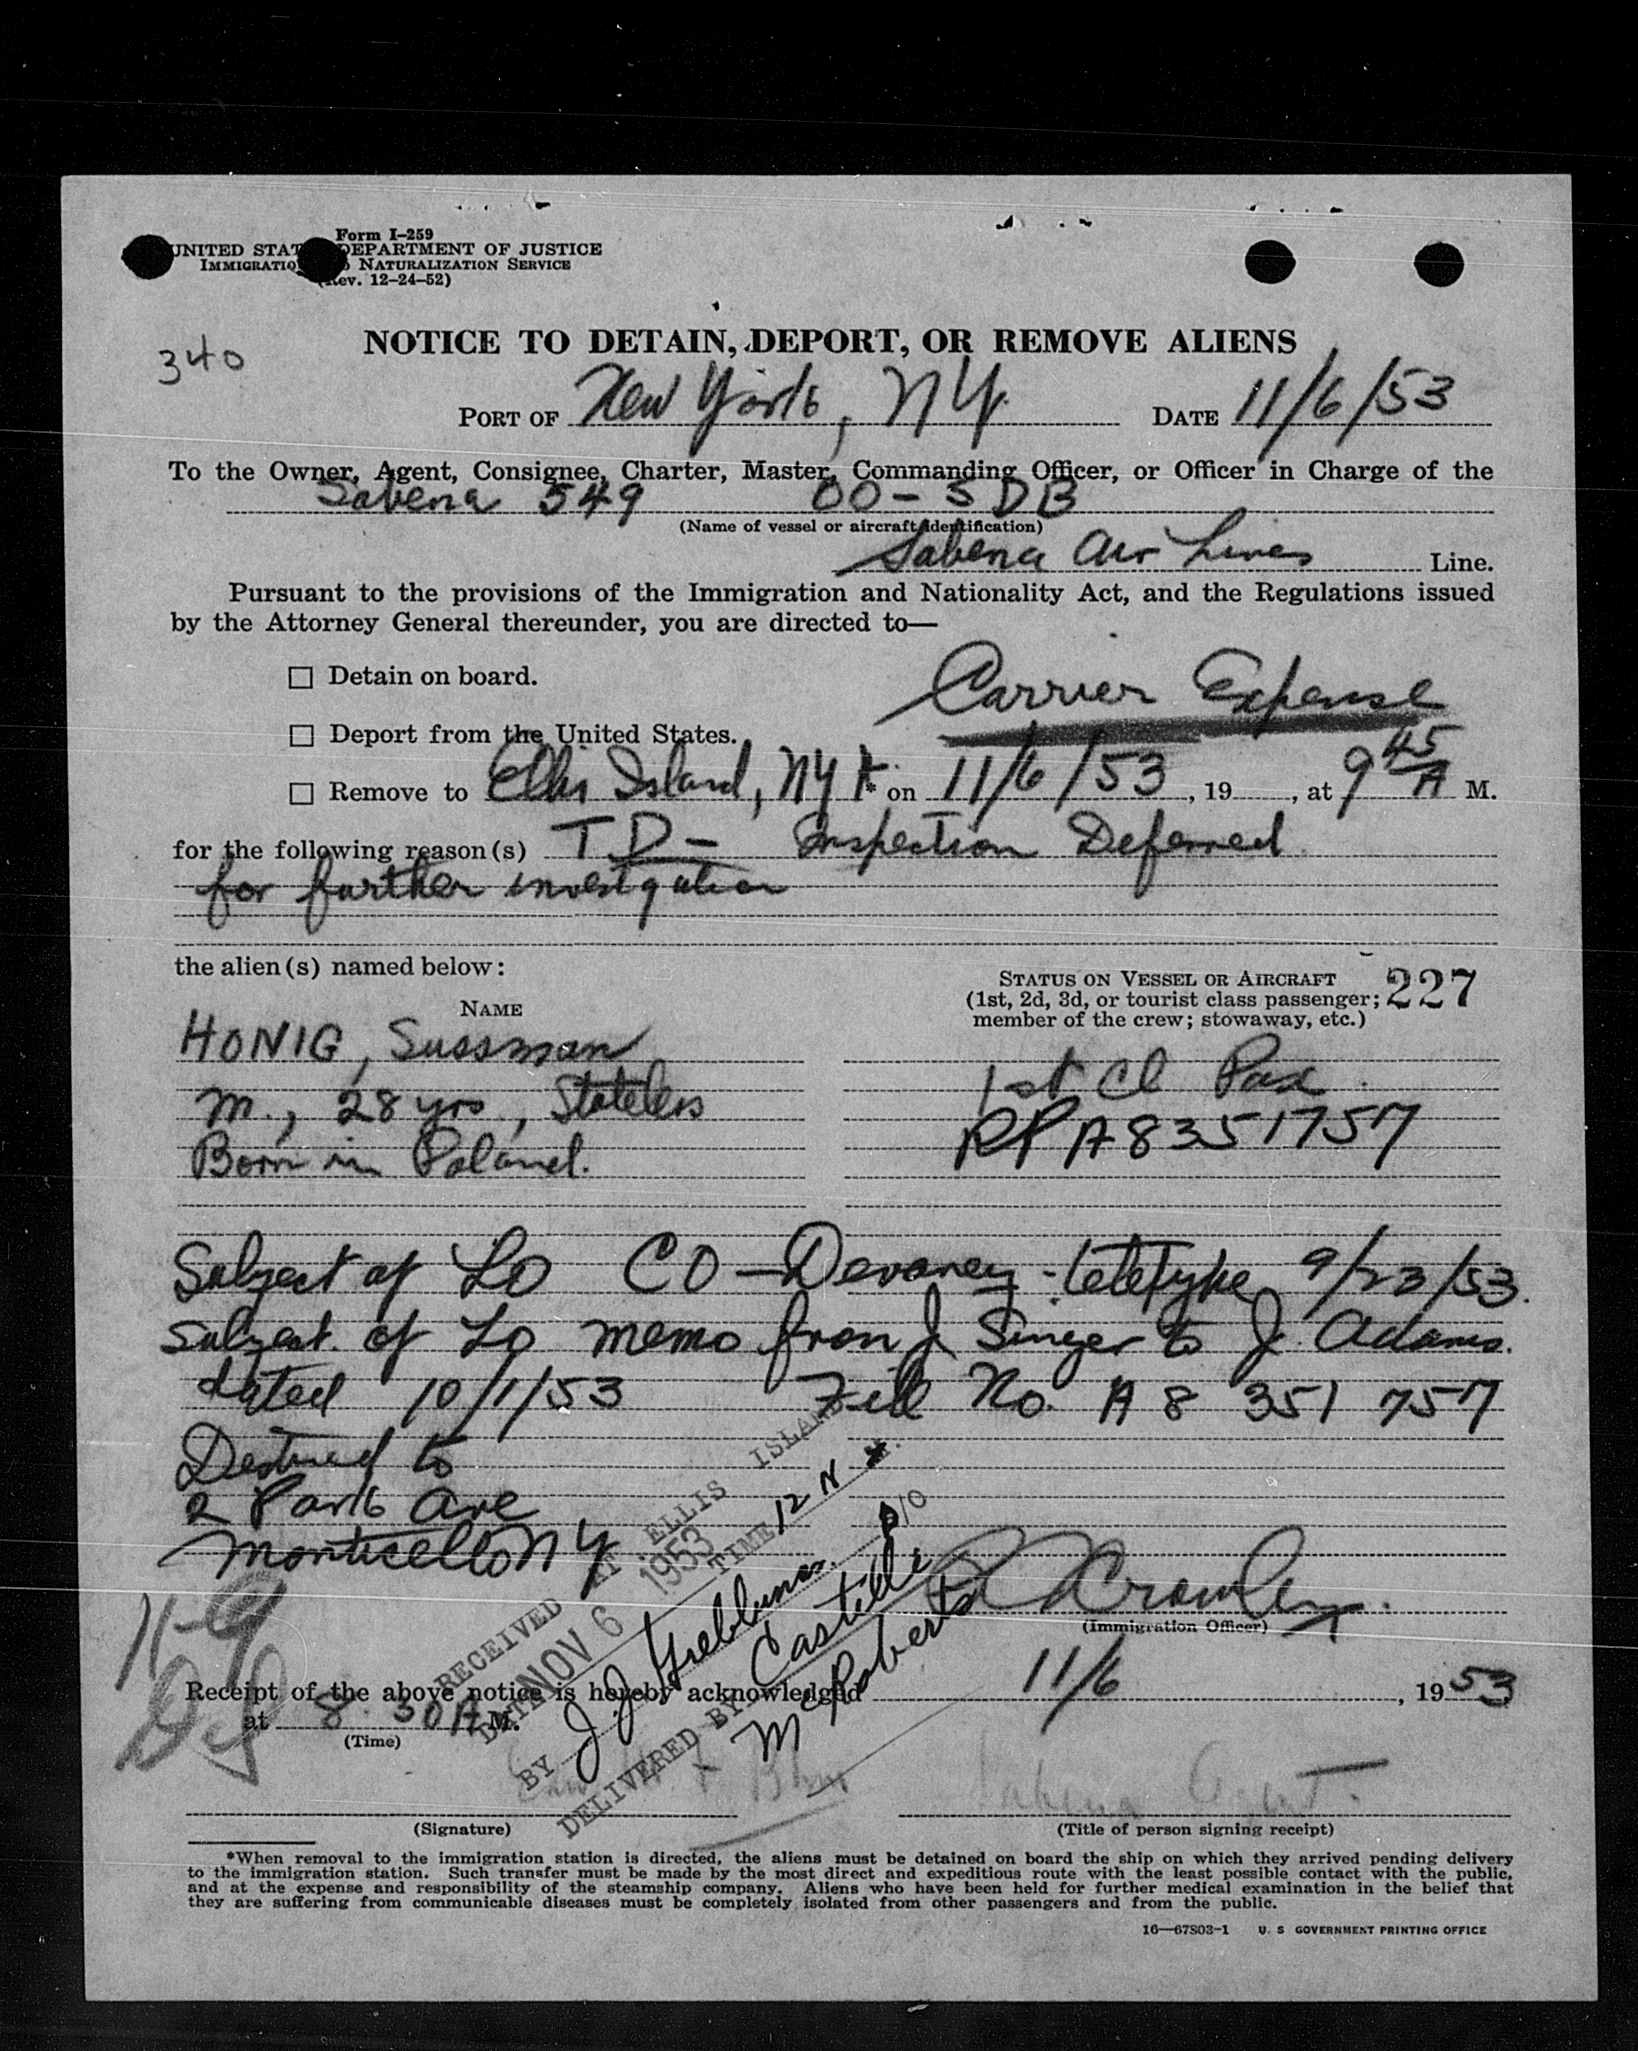 Form I-259
UNITED STAT DEPARTMENT OF JUSTICE
IMMIGRATIO NATURALIZATION SERVICE
ev. 12-24-52)
340
NOTICE TO DETAIN, DEPORT, OR REMOVE ALIENS
PORT OF New York, NY. DATE 11/6/53
To the Owner, Agent, Consignee, Charter, Master, Commanding Officer, or Officer in Charge of the
Sabena 549 OO-SDB
(Name of vessel or aircraft identification)
Sabena Air Lines Line.
Pursuant to the provisions of the Immigration and Nationality Act, and the Regulations issued
by the Attorney General thereunder, you are directed to—
☐ Detain on board.
Carrier Expense
☐ Deport from the United States.
☐ Remove to Ellis Island, NY * on 11/6/53, 19, at 9 45 A M.
for the following reason(s) TD - Inspection Deferred
for further investigation
the alien(s) named below:
NAME
STATUS ON VESSEL OR AIRCRAFT
(1st, 2d, 3d, or tourist class passenger;
member of the crew; stowaway, etc.)
227
HONIG, Sussman
M., 28 yrs, Stateless
Born in Poland.
1st Cl Pax.
RP A8351757
Subject of LO CO - Devaney - teletype 9/23/53.
Subject of LO memo from J. Singer to J. Adams.
dated 10/1/53 File No. A8 351 757
Destined to
2 Park Ave
Monticello NY
RECEIVED AT ELLIS ISLAND
DATE NOV 6 1953 TIME 12 N M.
BY J.J.
DELIVERED BY Castille
McRoberts
Crowley
(Immigration Officer)
11-9
Def
Receipt of the above notice is hereby acknowledged 11/6, 1953
at 8:30 A M.
(Time)
Sabena Agent.
(Signature)
(Title of person signing receipt)
*When removal to the immigration station is directed, the aliens must be detained on board the ship on which they arrived pending delivery
to the immigration station. Such transfer must be made by the most direct and expeditious route with the least possible contact with the public,
and at the expense and responsibility of the steamship company. Aliens who have been held for further medical examination in the belief that
they are suffering from communicable diseases must be completely isolated from other passengers and from the public.
16—67803-1 U. S GOVERNMENT PRINTING OFFICE